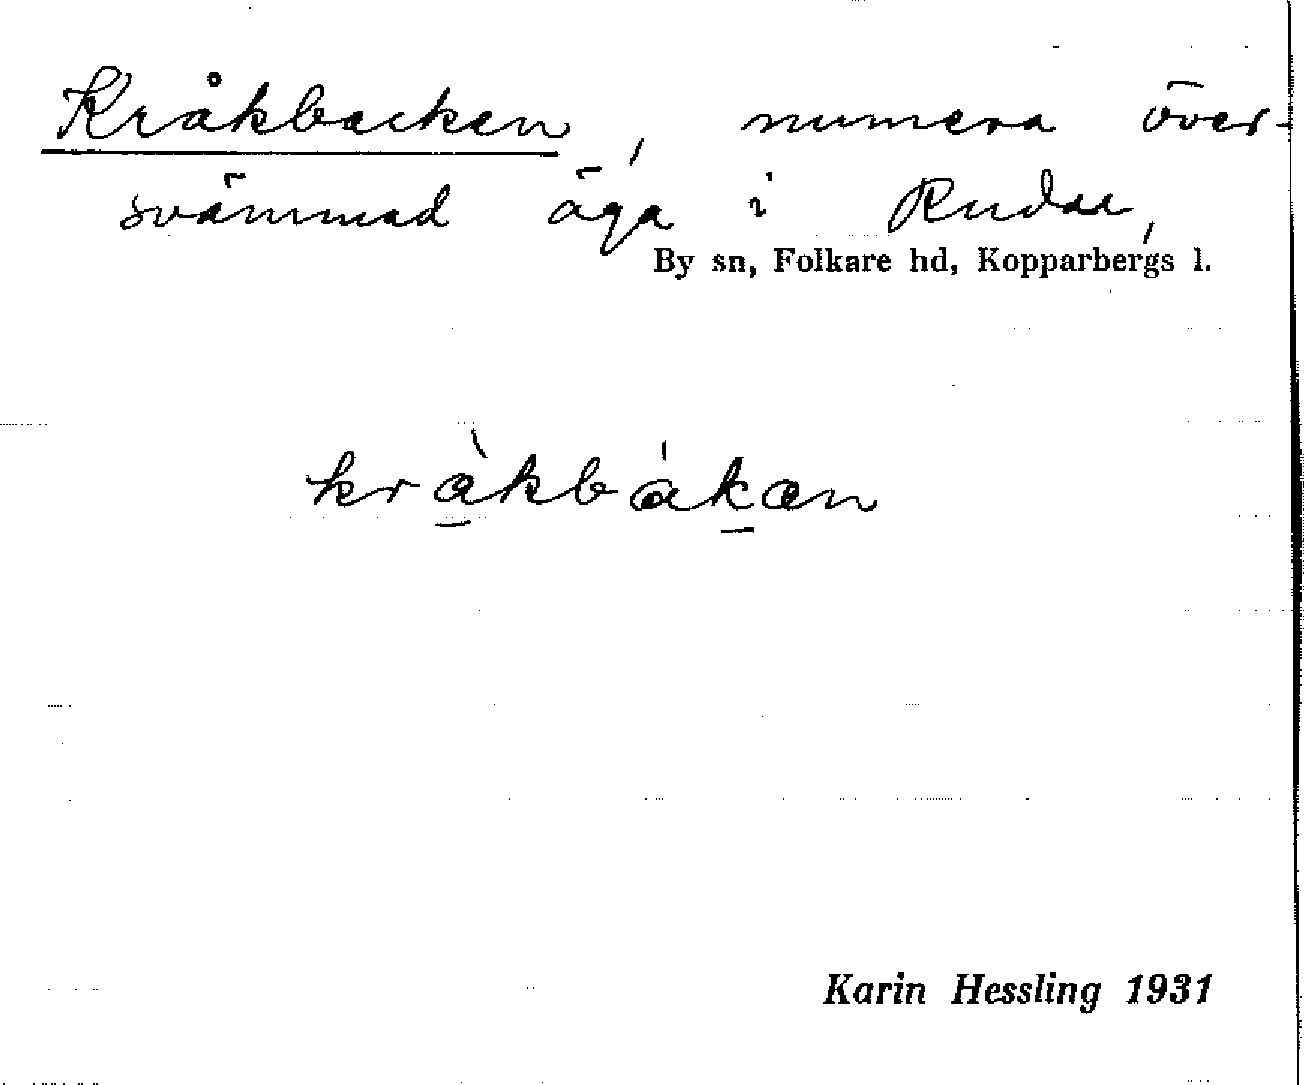 Kråkbacken, numera över-
svämmad äga i Rudu,
By sn, Folkare hd, Kopparbergs l.
kràkbákæn
Karin Hessling 1931